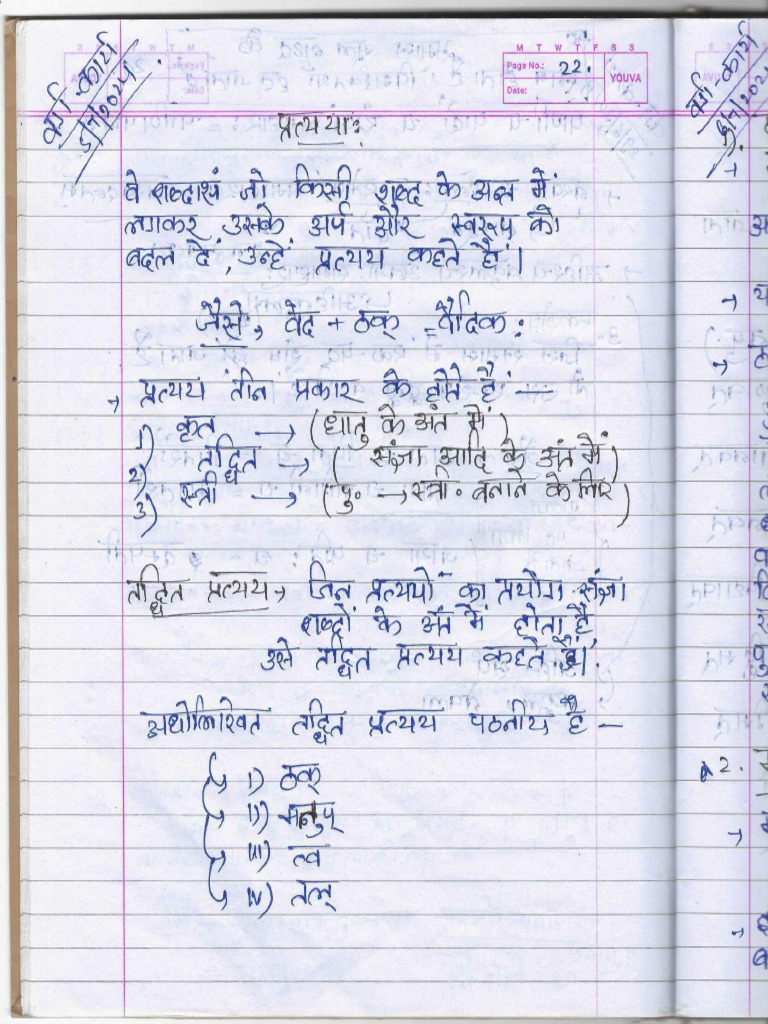 वर्ग-कार्य
5/7/2024
M T W T F S S
Page No.: 22.
Date:
YOUVA
प्रत्ययाः
वे शब्दांश जो किसी शब्द के अन्त में
लगाकर उसके अर्थ और स्वरूप को
बदल दें, उन्हें प्रत्यय कहते हैं।
जैसे, वेद + ठक् = वैदिकः
→ प्रत्यय तीन प्रकार के होते हैं
1) कृत → (धातु के अंत में)
2) तद्धित → (संज्ञा आदि के अंत में)
3) स्त्री → (पु. → स्त्री. बनाने के लिए)
तद्धित प्रत्यय → जिन प्रत्ययों का प्रयोग संज्ञा
शब्दों के अंत में होता है,
उसे तद्धित प्रत्यय कहते हैं।
अधोलिखित तद्धित प्रत्यय पठनीय है —
i) ठक्
ii) मतुप्
iii) त्व
iv) तल्
वर्ग-कार्य
2.